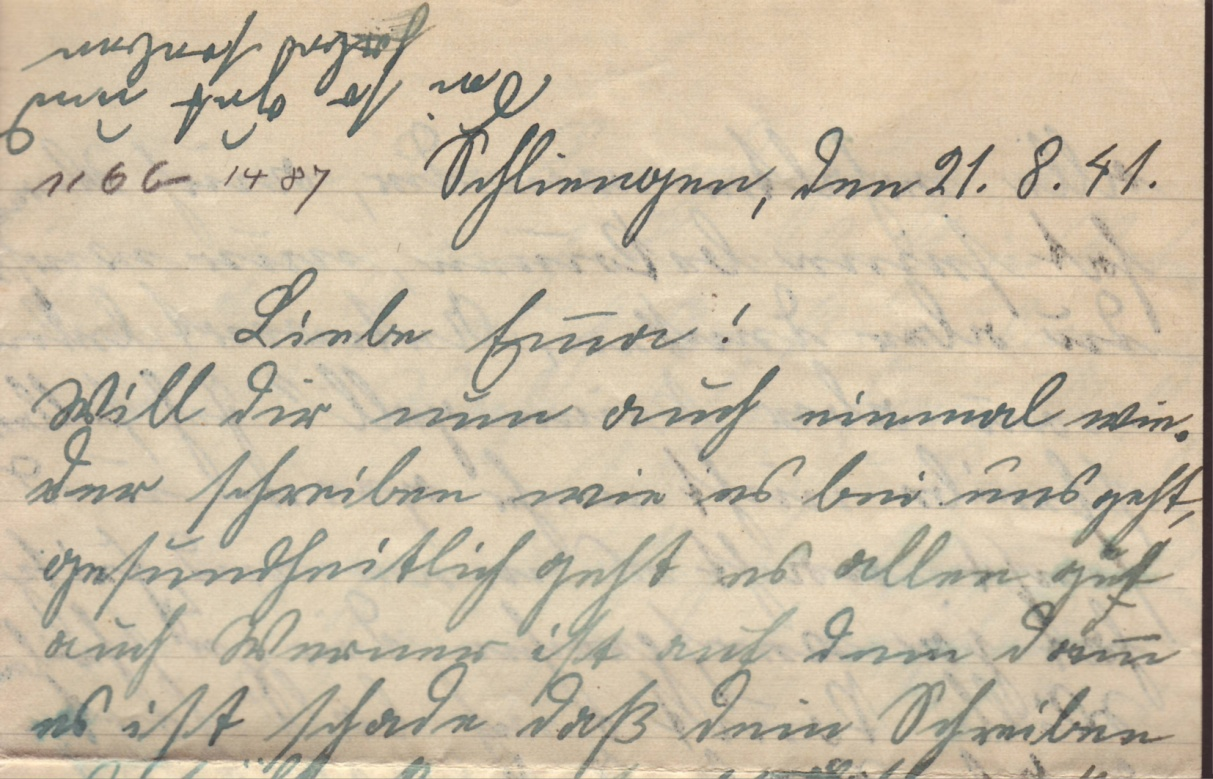 Schliengen, den 21. 8. 41.
Liebe Em̅a!
Will dir nun auch einmal wie-
der schreiben wie es bei uns geht,
gesundheitlich geht es allen gut
auch Werner ist auf dem Dam̅
es ist schade daß dein Schreiben